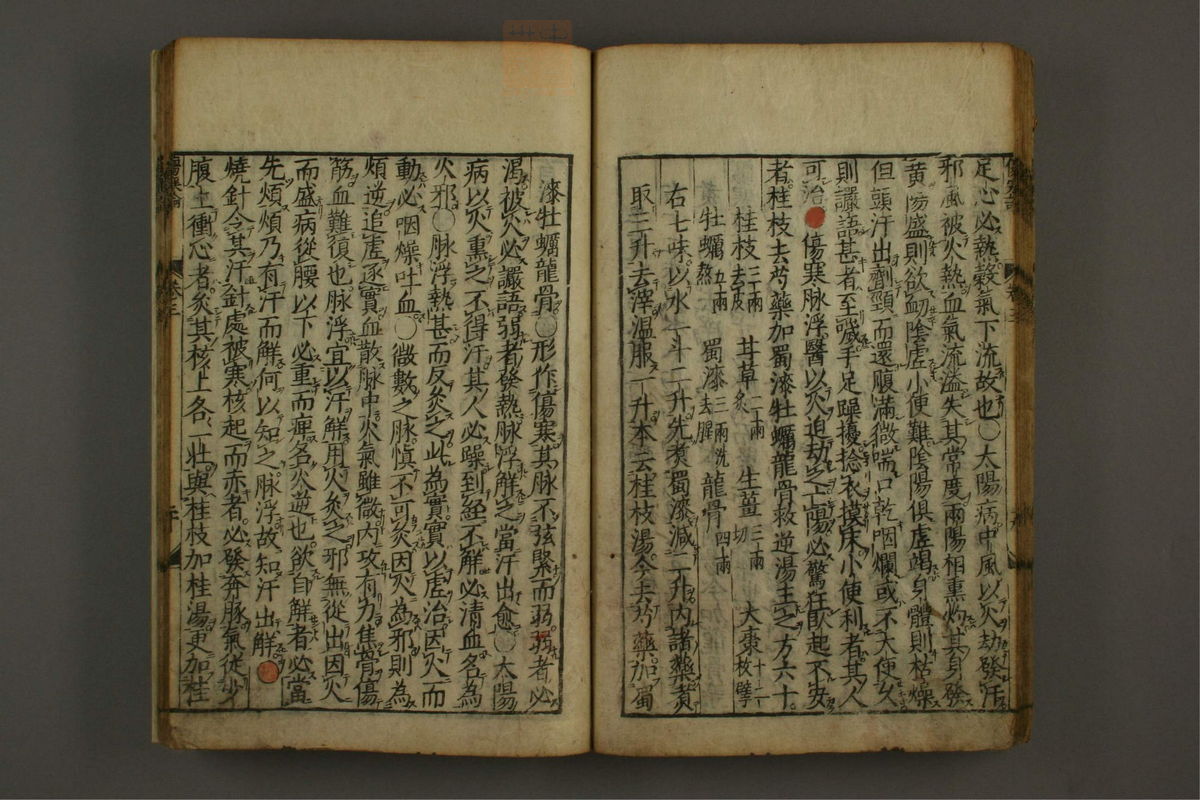 足心必熱穀氣下流故也〇太陽病中風以火劫發汗
邪風被火熱血氣流溢失其常度兩陽相熏灼其身發
黃陽盛則欲衂陰虛小便難陰陽俱虛竭身體則枯燥
但頭汗出劑頸而還腹滿微喘口乾咽爛或不大便久
則讝語甚者至噦手足躁擾捻衣摸床小便利者其人
可治 傷寒脉浮醫以火迫劫之亡陽必驚狂臥起不安
者桂枝去芍藥加蜀漆牡蠣龍骨救逆湯主之方六十
桂枝三兩去皮 甘草二兩炙 生薑三兩切 大棗十二枚擘
牡蠣五兩熬 蜀漆三兩洗去腥 龍骨四兩
右七味以水一斗二升先煑蜀漆減二升内諸藥煑
取三升去滓溫服一升本云桂枝湯今去芍藥加蜀
漆牡蠣龍骨〇形作傷寒其脉不弦緊而弱弱者必
渴被火必讝語弱者發熱脉浮解之當汗出愈〇太陽
病以火熏之不得汗其人必躁到經不解必清血名為
火邪〇脉浮熱甚而反灸之此為實實以虛治因火而
動必咽燥吐血〇微數之脉慎不可灸因火為邪則為
煩逆追虛逐實血散脉中火氣雖微内攻有力焦骨傷
筋血難復也脉浮宜以汗解用火灸之邪無從出因火
而盛病從腰以下必重而痺名火逆也欲自解者必當
先煩煩乃有汗而解何以知之脉浮故知汗出解
燒針令其汗針處被寒核起而赤者必發奔豚氣從少
腹上衝心者灸其核上各一壯與桂枝加桂湯更加桂
傷寒論 卷三